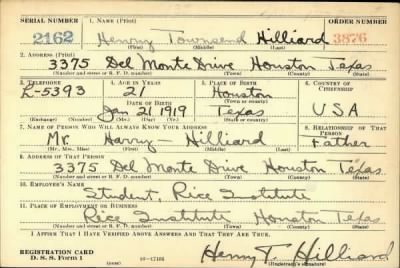 SERIAL NUMBER 1. NAME (Print) ORDER NUMBER
2162 Henry Townsend Hilliard 3876
(First) (Middle) (Last)
2. ADDRESS (Print)
3375 Del Monte Drive Houston Texas
(Number and street or R. F. D. number) (Town) (County) (State)
3. TELEPHONE 4. AGE IN YEARS 5. PLACE OF BIRTH 6. COUNTRY OF CITIZENSHIP
L-5393 21 Houston
DATE OF BIRTH (Town or county)
Jan 21 1919 Texas USA
(Exchange) (Number) (Mo.) (Day) (Yr.) (State or country)
7. NAME OF PERSON WHO WILL ALWAYS KNOW YOUR ADDRESS 8. RELATIONSHIP OF THAT PERSON
Mr. Harry - Hilliard Father
(Mr., Mrs., Miss) (First) (Middle) (Last)
9. ADDRESS OF THAT PERSON
3375 Del Monte Drive Houston Texas
(Number and street or R. F. D. number) (Town) (County) (State)
10. EMPLOYER'S NAME
Student, Rice Institute
11. PLACE OF EMPLOYMENT OR BUSINESS
Rice Institute Houston Texas
(Number and street or R. F. D. number) (Town) (County) (State)
I AFFIRM THAT I HAVE VERIFIED ABOVE ANSWERS AND THAT THEY ARE TRUE.
REGISTRATION CARD
D. S. S. Form 1 16-17105 Henry T. Hilliard
(Registrant's signature)